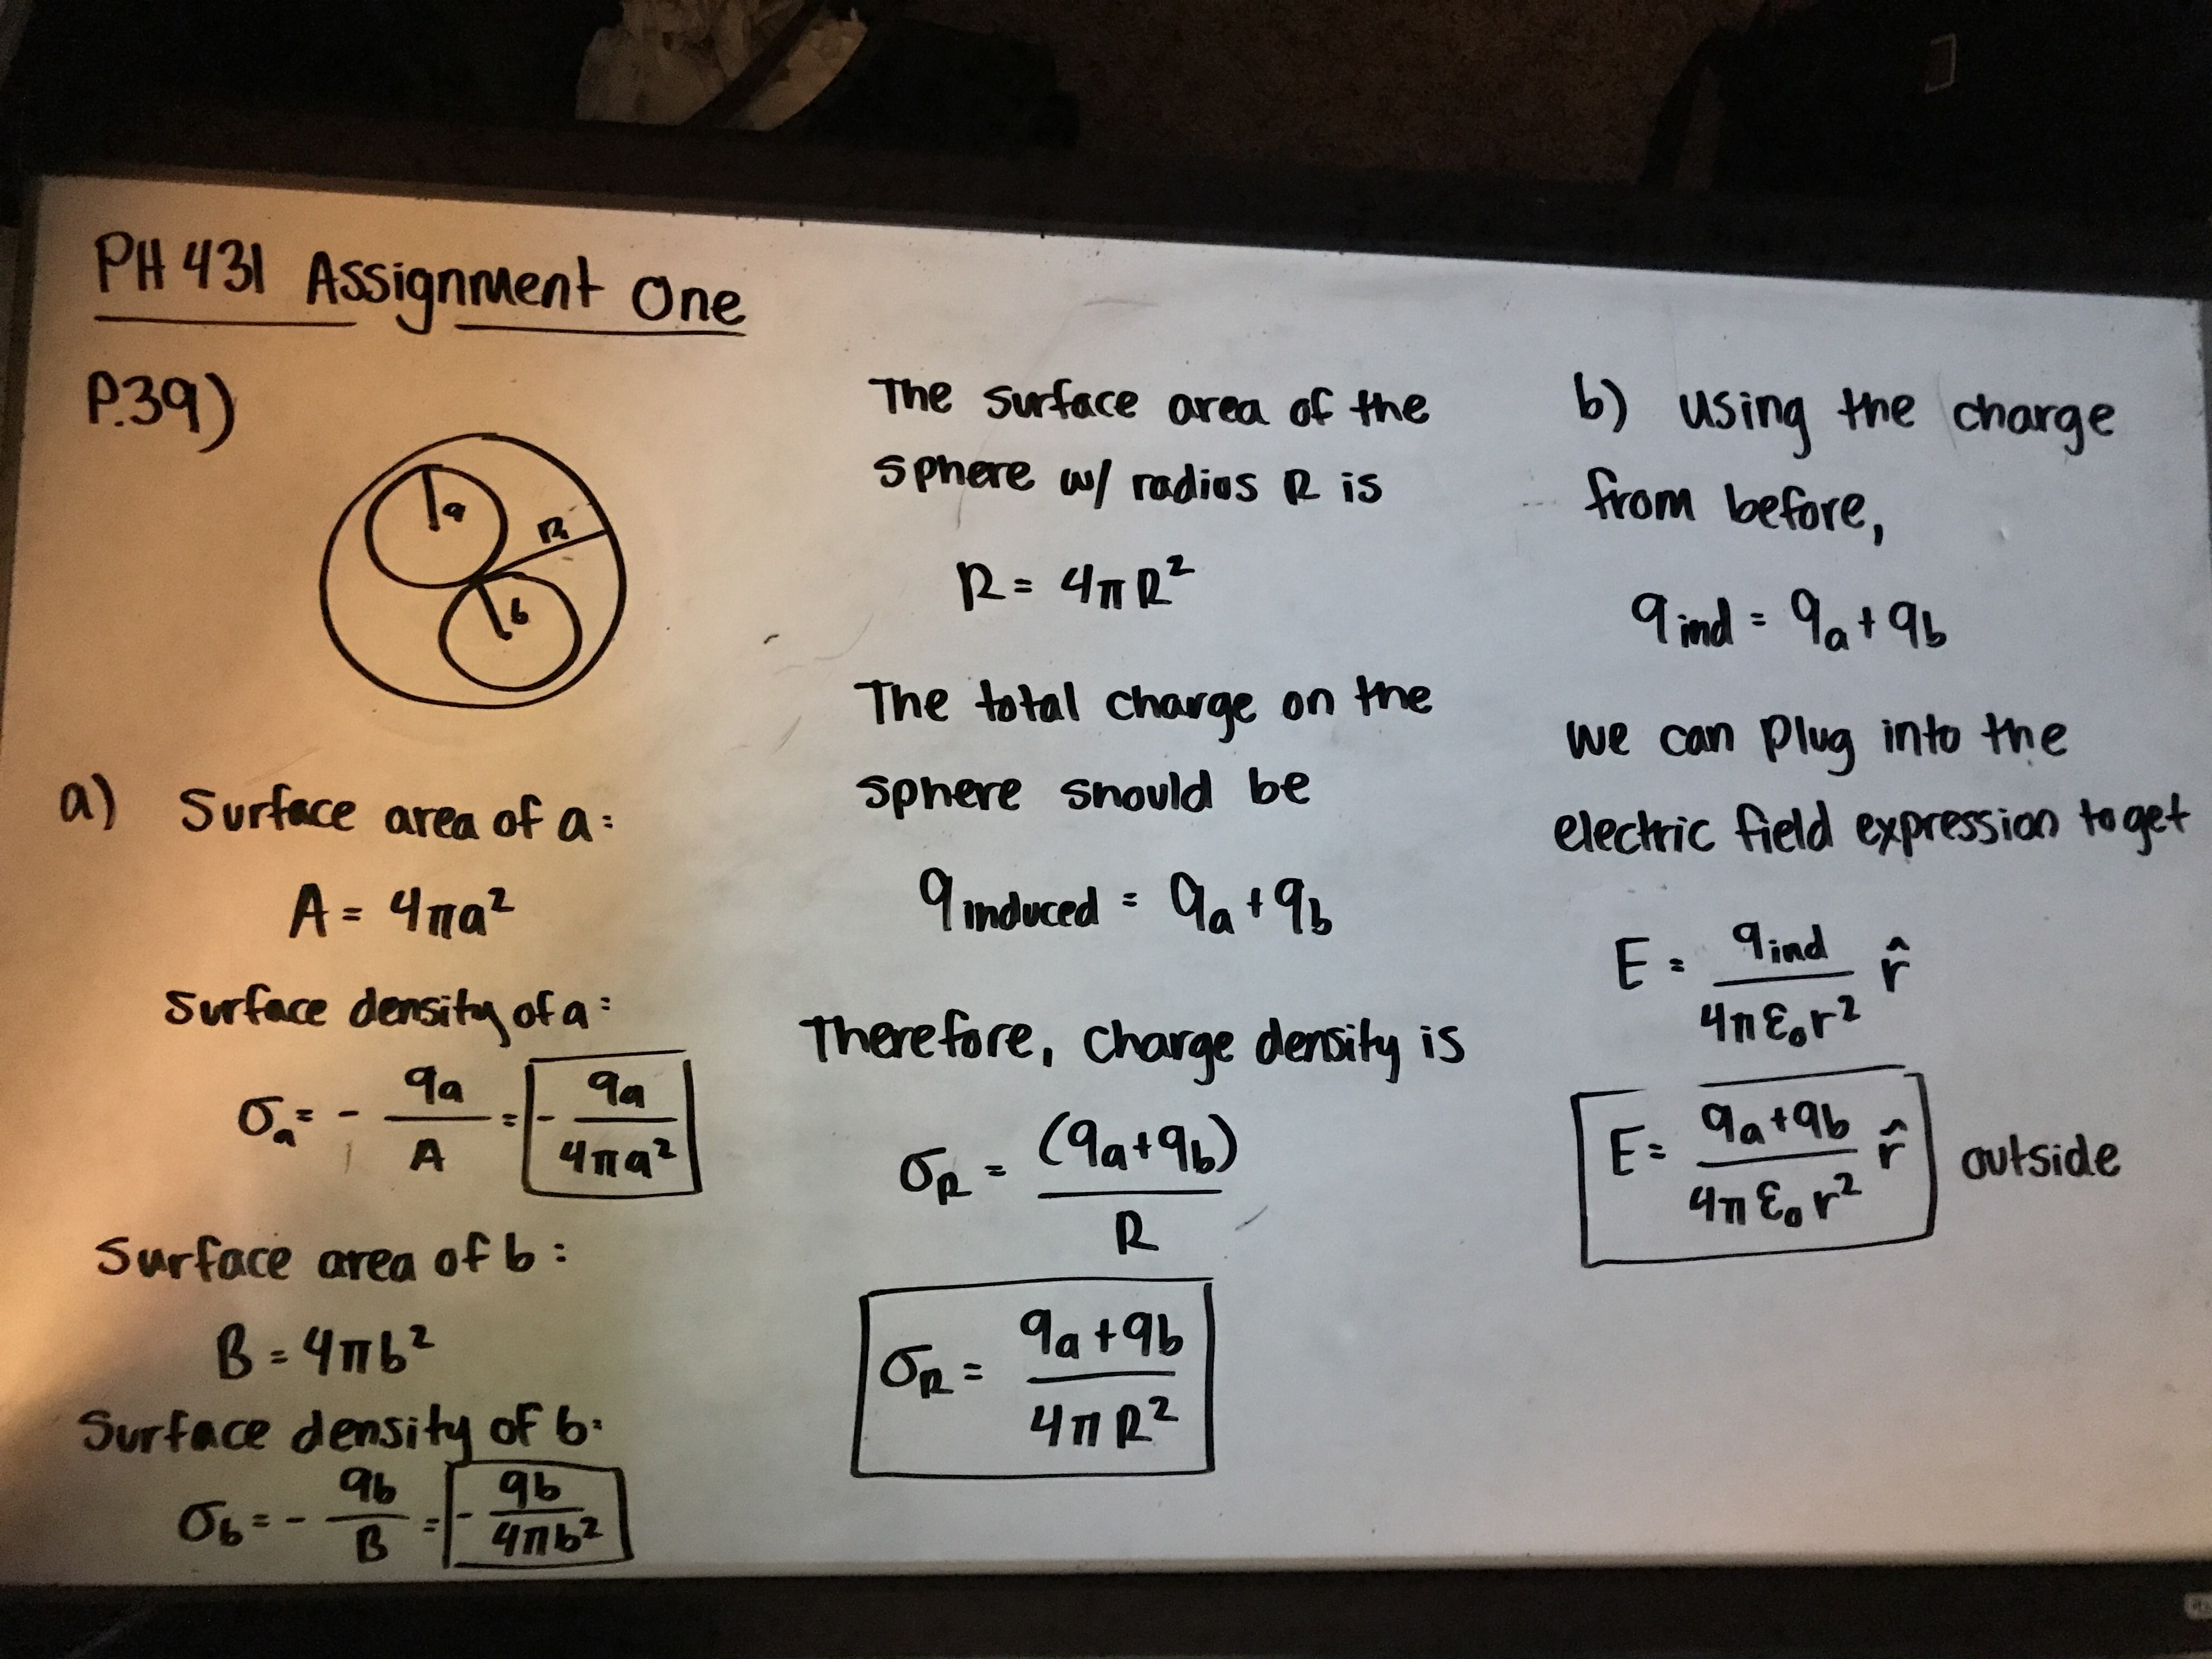 PH 431 Assignment One
P.39)
a
R
b
a) Surface area of a:
A = 4πa²
Surface density of a:
σₐ = - qₐ/A = - qₐ/4πa²
Surface area of b:
B = 4πb²
Surface density of b:
σ_b = - q_b/B = - q_b/4πb²
The surface area of the
sphere w/ radius R is
R = 4πR²
The total charge on the
sphere should be
q induced = qₐ + q_b
Therefore, charge density is
σ_R = (qₐ + q_b)/R
σ_R = qₐ + q_b/4πR²
b) using the charge
from before,
q ind = qₐ + q_b
we can plug into the
electric field expression to get
E = q ind/4πε₀r² r̂
E = qₐ + q_b/4πε₀r² r̂ outside